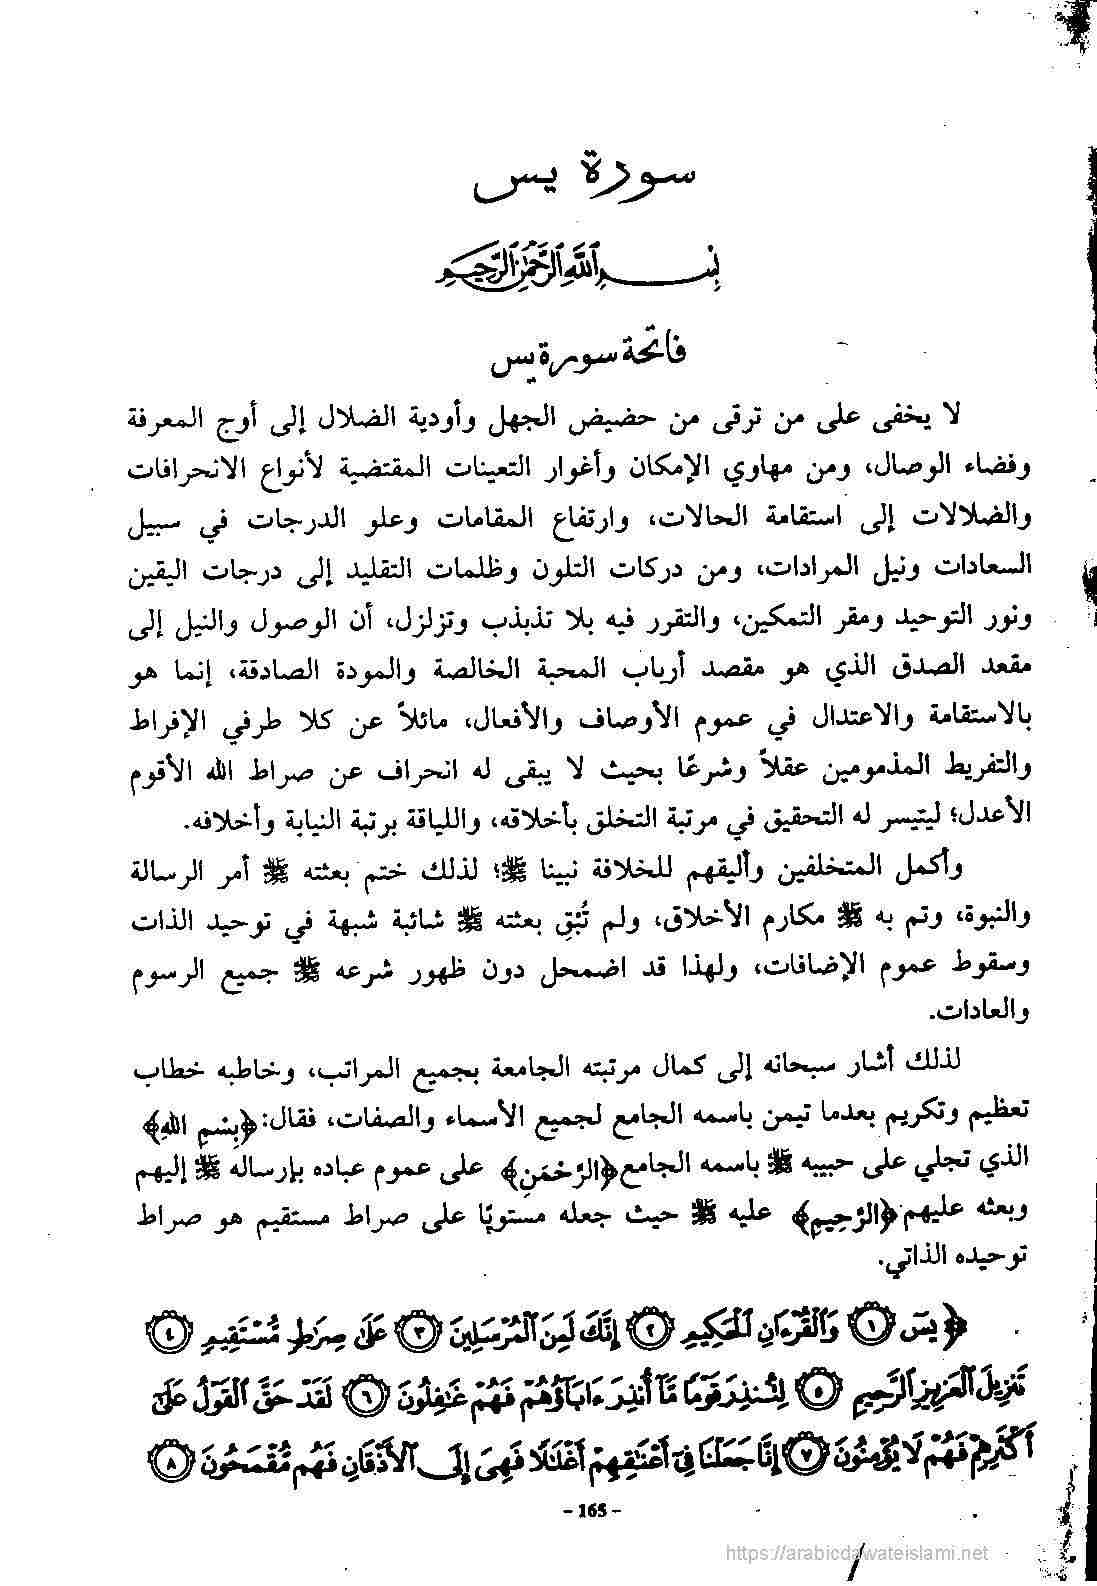 سورة يس
بِسْمِ ٱللَّهِ ٱلرَّحْمَٰنِ ٱلرَّحِيمِ
فاتحة سورة يس
لا يخفى على من ترقى من حضيض الجهل وأودية الضلال إلى أوج المعرفة
وفضاء الوصال، ومن مهاوي الإمكان وأغوار التعينات المقتضية لأنواع الانحرافات
والضلالات إلى استقامة الحالات، وارتفاع المقامات وعلو الدرجات في سبيل
السعادات ونيل المرادات، ومن دركات التلون وظلمات التقليد إلى درجات اليقين
ونور التوحيد ومقر التمكين، والتقرر فيه بلا تذبذب وتزلزل، أن الوصول والنيل إلى
مقعد الصدق الذي هو مقصد أرباب المحبة الخالصة والمودة الصادقة، إنما هو
بالاستقامة والاعتدال في عموم الأوصاف والأفعال، مائلاً عن كلا طرفي الإفراط
والتفريط المذمومين عقلاً وشرعًا بحيث لا يبقى له انحراف عن صراط الله الأقوم
الأعدل؛ ليتيسر له التحقيق في مرتبة التخلق بأخلاقه، واللياقة برتبة النيابة وأخلافه.
وأكمل المتخلفين وأليقهم للخلافة نبينا ﷺ؛ لذلك ختم ببعثته ﷺ أمر الرسالة
والنبوة، وتم به ﷺ مكارم الأخلاق، ولم تُبْقِ بعثته ﷺ شائبة شبهة في توحيد الذات
وسقوط عموم الإضافات، ولهذا قد اضمحل دون ظهور شرعه ﷺ جميع الرسوم
والعادات.
لذلك أشار سبحانه إلى كمال مرتبته الجامعة بجميع المراتب، وخاطبه خطاب
تعظيم وتكريم بعدما تيمن باسمه الجامع لجميع الأسماء والصفات، فقال:﴿بِسْمِ اللهِ﴾
الذي تجلي على حبيبه ﷺ باسمه الجامع﴿الرَّحْمَنِ﴾ على عموم عباده بإرساله ﷺ إليهم
وبعثه عليهم﴿الرَّحِيمِ﴾ عليه ﷺ حيث جعله مستويًا على صراط مستقيم هو صراط
توحيده الذاتي.
﴿يسٓ ١ وَٱلْقُرْءَانِ ٱلْحَكِيمِ ٢ إِنَّكَ لَمِنَ ٱلْمُرْسَلِينَ ٣ عَلَىٰ صِرَٰطٍ مُّسْتَقِيمٍ ٤
تَنزِيلَ ٱلْعَزِيزِ ٱلرَّحِيمِ ٥ لِتُنذِرَ قَوْمًا مَّآ أُنذِرَ ءَابَآؤُهُمْ فَهُمْ غَٰفِلُونَ ٦ لَقَدْ حَقَّ ٱلْقَوْلُ عَلَىٰٓ
أَكْثَرِهِمْ فَهُمْ لَا يُؤْمِنُونَ ٧ إِنَّا جَعَلْنَا فِىٓ أَعْنَٰقِهِمْ أَغْلَٰلًا فَهِىَ إِلَى ٱلْأَذْقَانِ فَهُم مُّقْمَحُونَ ٨
- 165 -
https://arabicdawateislami.net